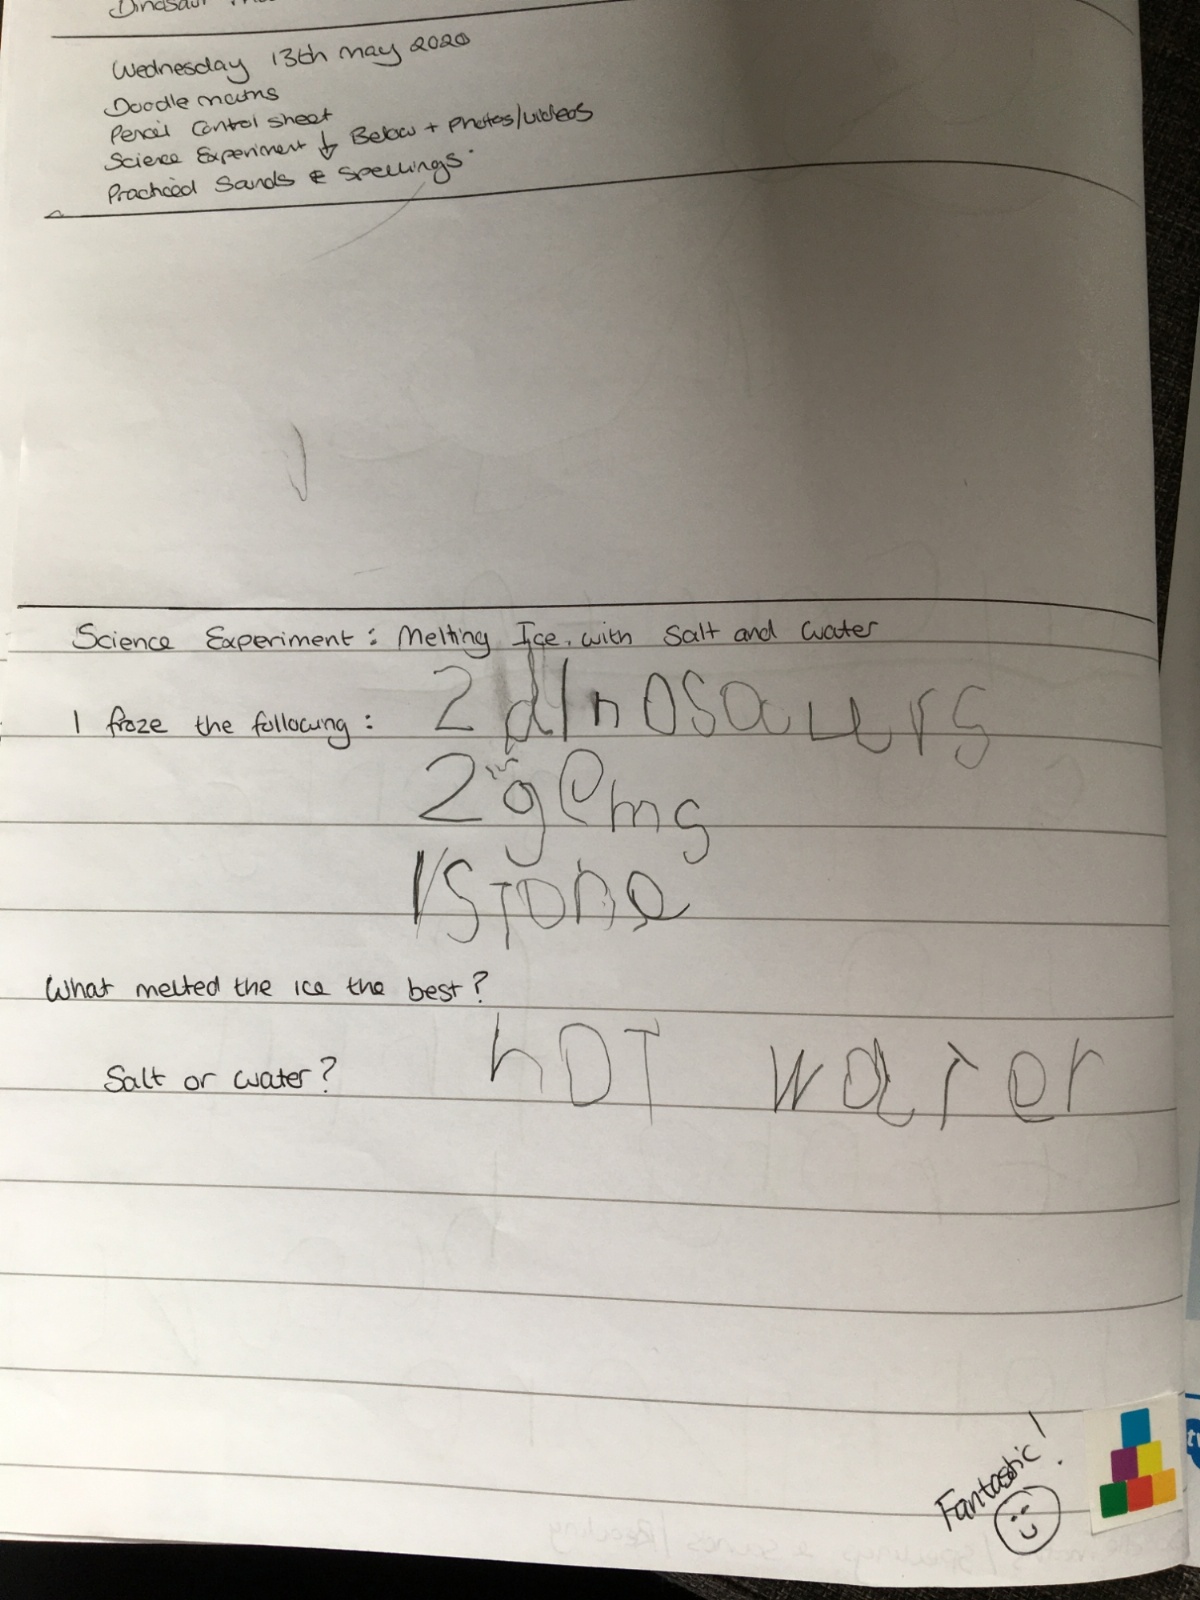 Dinosaur
Wednesday 13th May 2020
Doodle maths
Pencil Control sheet
Science Experiment ↓ Below + Photos/videos
Practiced Sounds & Spellings.
Science Experiment: Melting Ice. with Salt and Water
I froze the following: 2 dInosauers
2 gems
1 Stone
What melted the ice the best?
Salt or water? hOT water
Fantastic!